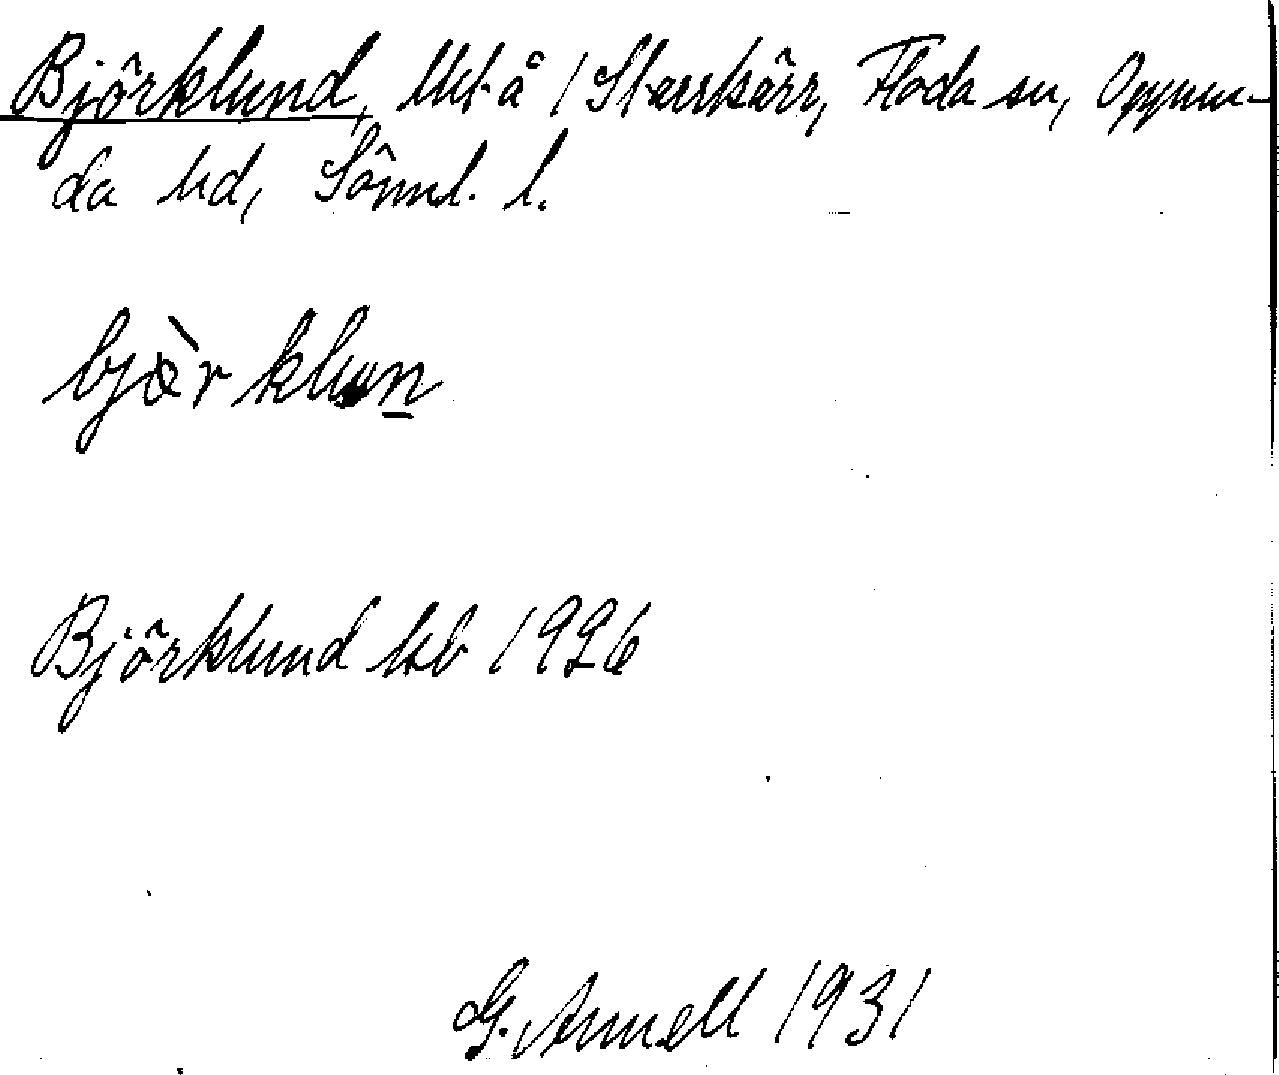 Björklund, lht å 1 Stenskärr, Floda sn, Oppun-
da hd, Södml. l.
bjæ̀rklun
Björklund kb 1926
G. Annell 1931